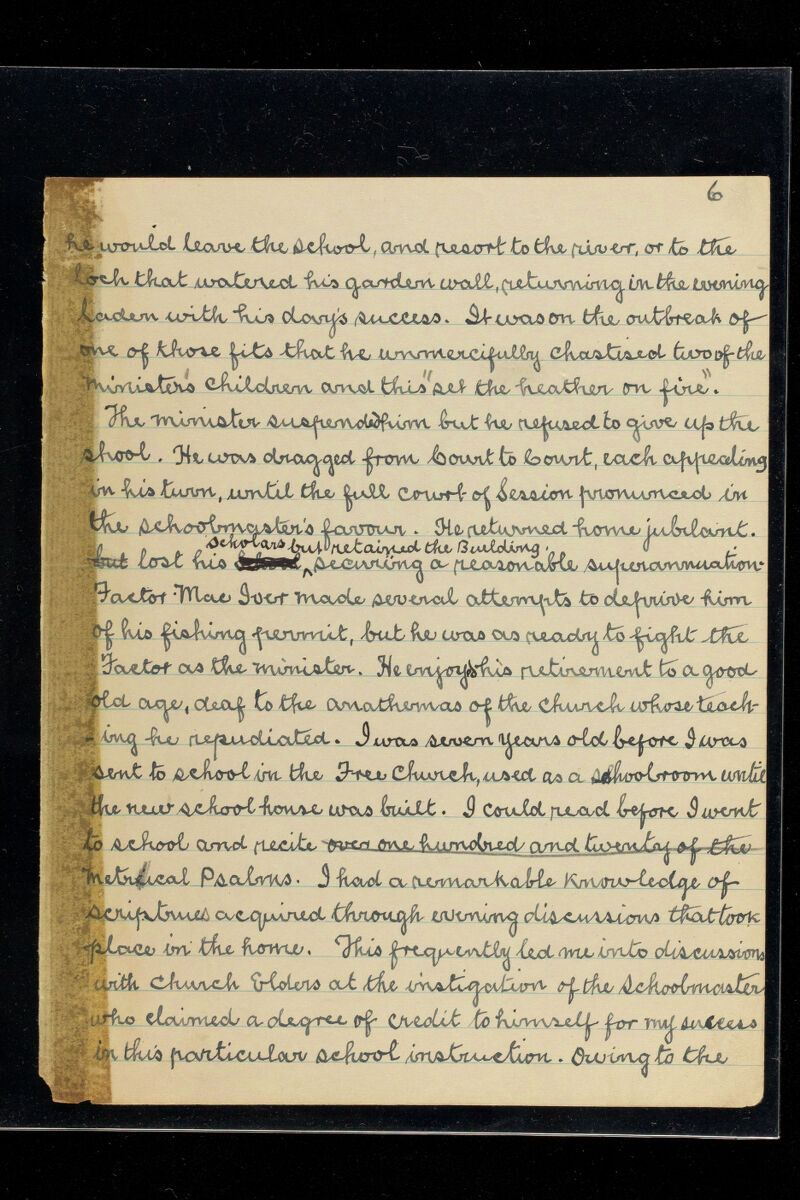 6
he would leave the school, and resort to the river, or to the
loch that watered his garden wall, returning in the evening
laden with his day's success. It was on the outbreak of
one of those fits that he unmercifully chastised two of the
minister's children and this "set the heather on fire".
The minister suspended him but he refused to give up the
shool. He was dragged from Court to Court, each appealing
in his turn, until the full court of Session pronunced in
the schoolmaster's favour. He returned home jubilant.
scholars but retained the Building.
but lost his school, ^ securing a reasonable superannuation
Factor Mac Iver made several attempts to deprive him
of his fishing permit, but he was as ready to fight the
Factor as the minister. He enjoyd his retirement to a good
old age, deaf to the anathemas of the church whose teach-
-ing he repudiated. I was seven years old before I was
sent to school in the Free Church, used as a schoolroom until
the new school house was built. I could read before I went
to school and recite over one hundred and twenty of the
Metrical Psalms. I had a remarkable knowledge of
scriptures acquired through evening discussions that took
place in the home. This frequently led me into discussions
with Church Elders at the instigation of the Schoolmaster
who claimed a degree of credit to himself for my success
in this particular school instruction. Owing to the